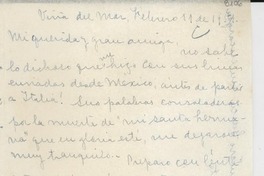 Viña del Mar, Febrero 11 de 1
Mi querida y gran amiga: no sabe
lo dichosa que hizo con sus líneas
enviadas desde México, antes de partir
a Italia! Sus palabras consoladoras
por la muerte de "mi santa herma-
na" que en gloria esté, me dejaron
muy tranquila. Preparo con